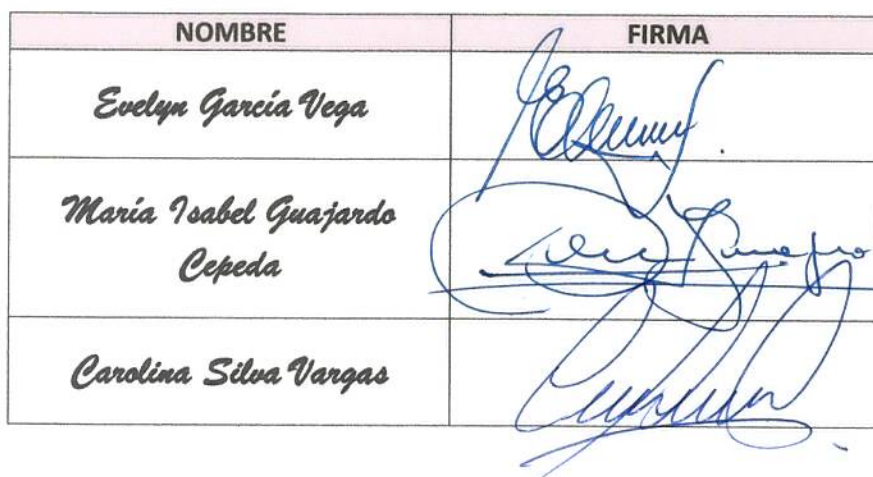 NOMBRE FIRMA
Evelyn García Vega
María Isabel Guajardo
Cepeda
Carolina Silva Vargas